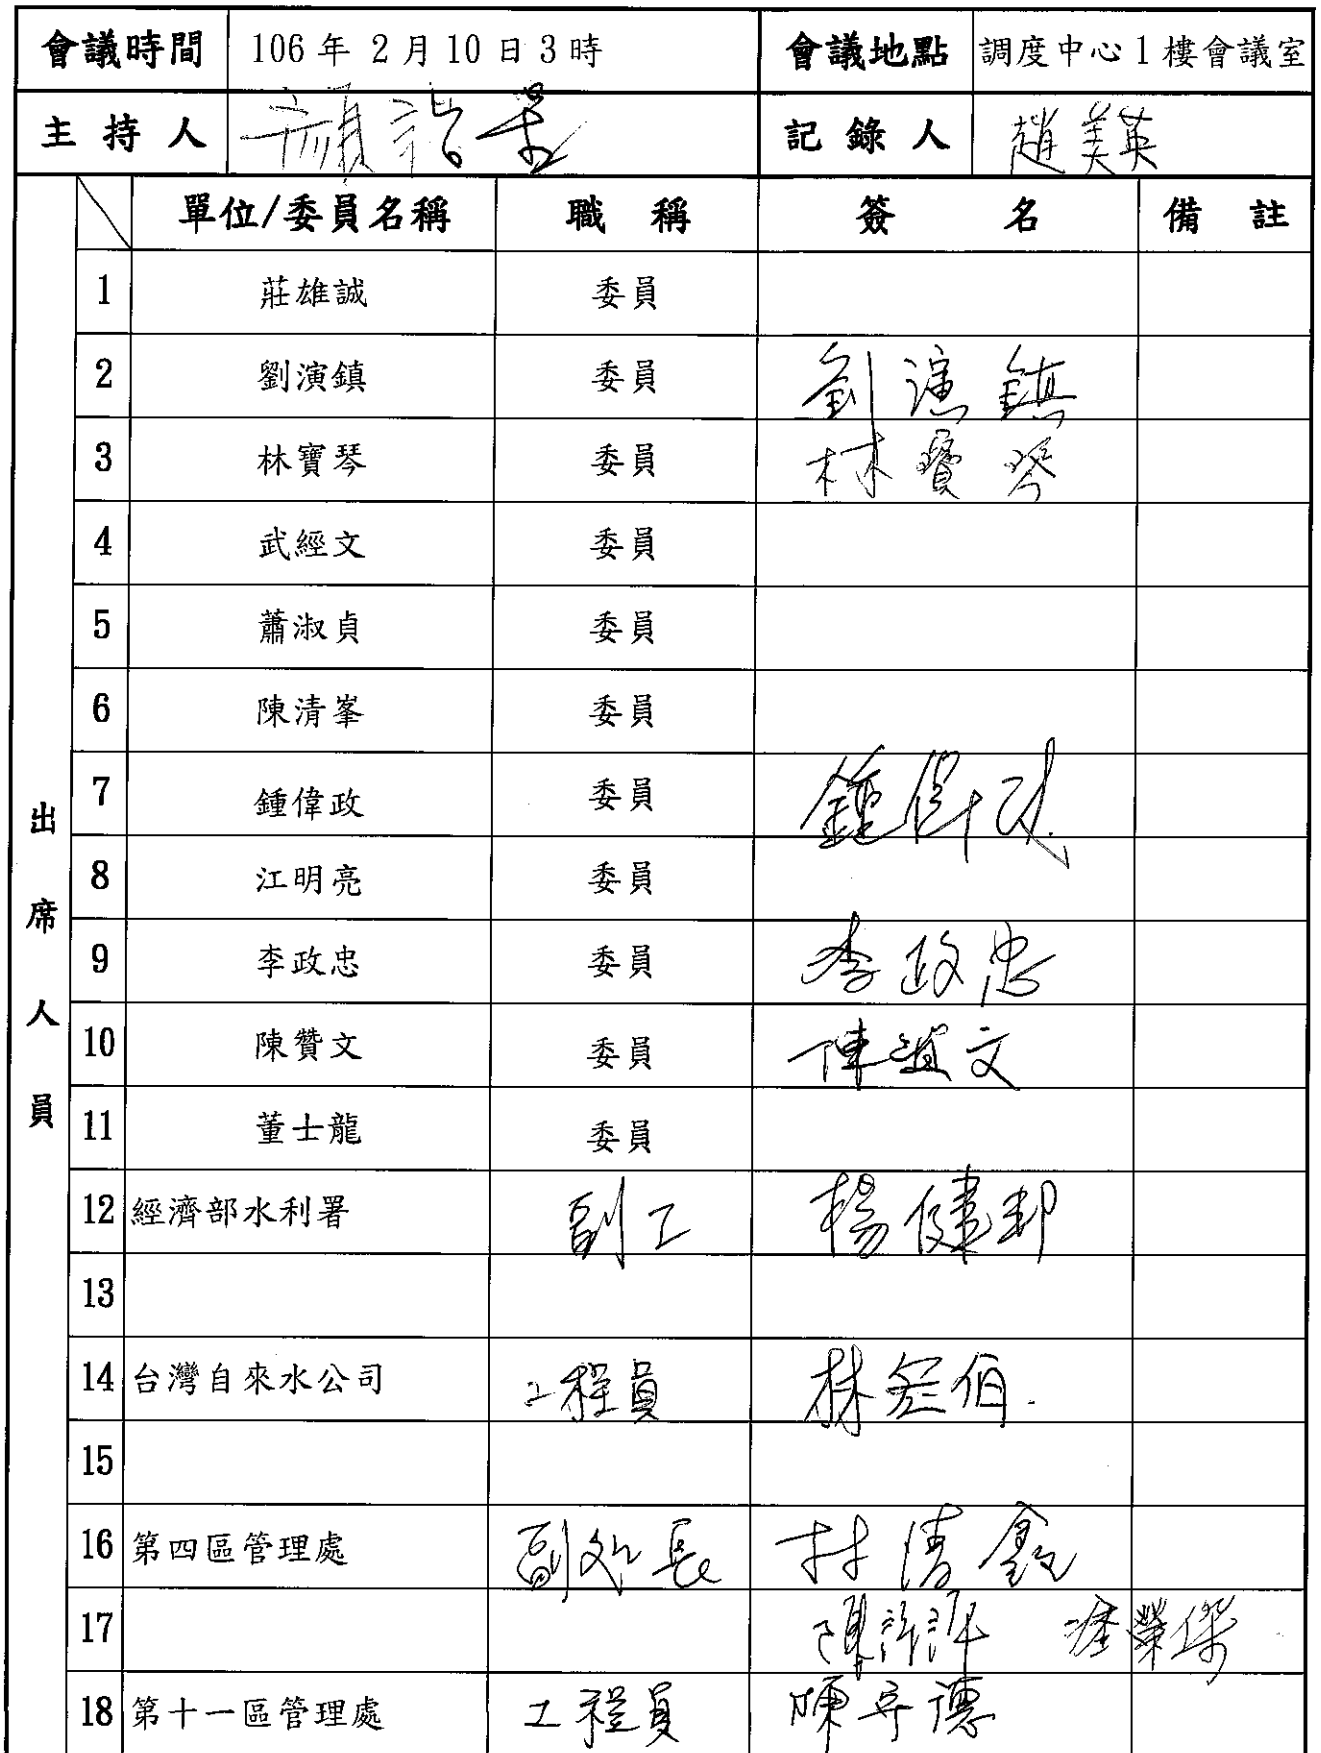 會議時間 106年 2月10日3時 會議地點 調度中心1樓會議室
主持人 記錄人 趙美英
單位/委員名稱 職稱 簽名 備註
出席人員
1 莊雄誠 委員
2 劉演鎮 委員 劉演鎮
3 林寶琴 委員 林寶琴
4 武經文 委員
5 蕭淑貞 委員
6 陳清峯 委員
7 鍾偉政 委員 鍾偉政
8 江明亮 委員
9 李政忠 委員 李政忠
10 陳贊文 委員 陳贊文
11 董士龍 委員
12 經濟部水利署 副工 楊健邦
13
14 台灣自來水公司 工程員 林 伯
15
16 第四區管理處 副處長 林清鑫
17 陳 榮傑
18 第十一區管理處 工程員 陳守德